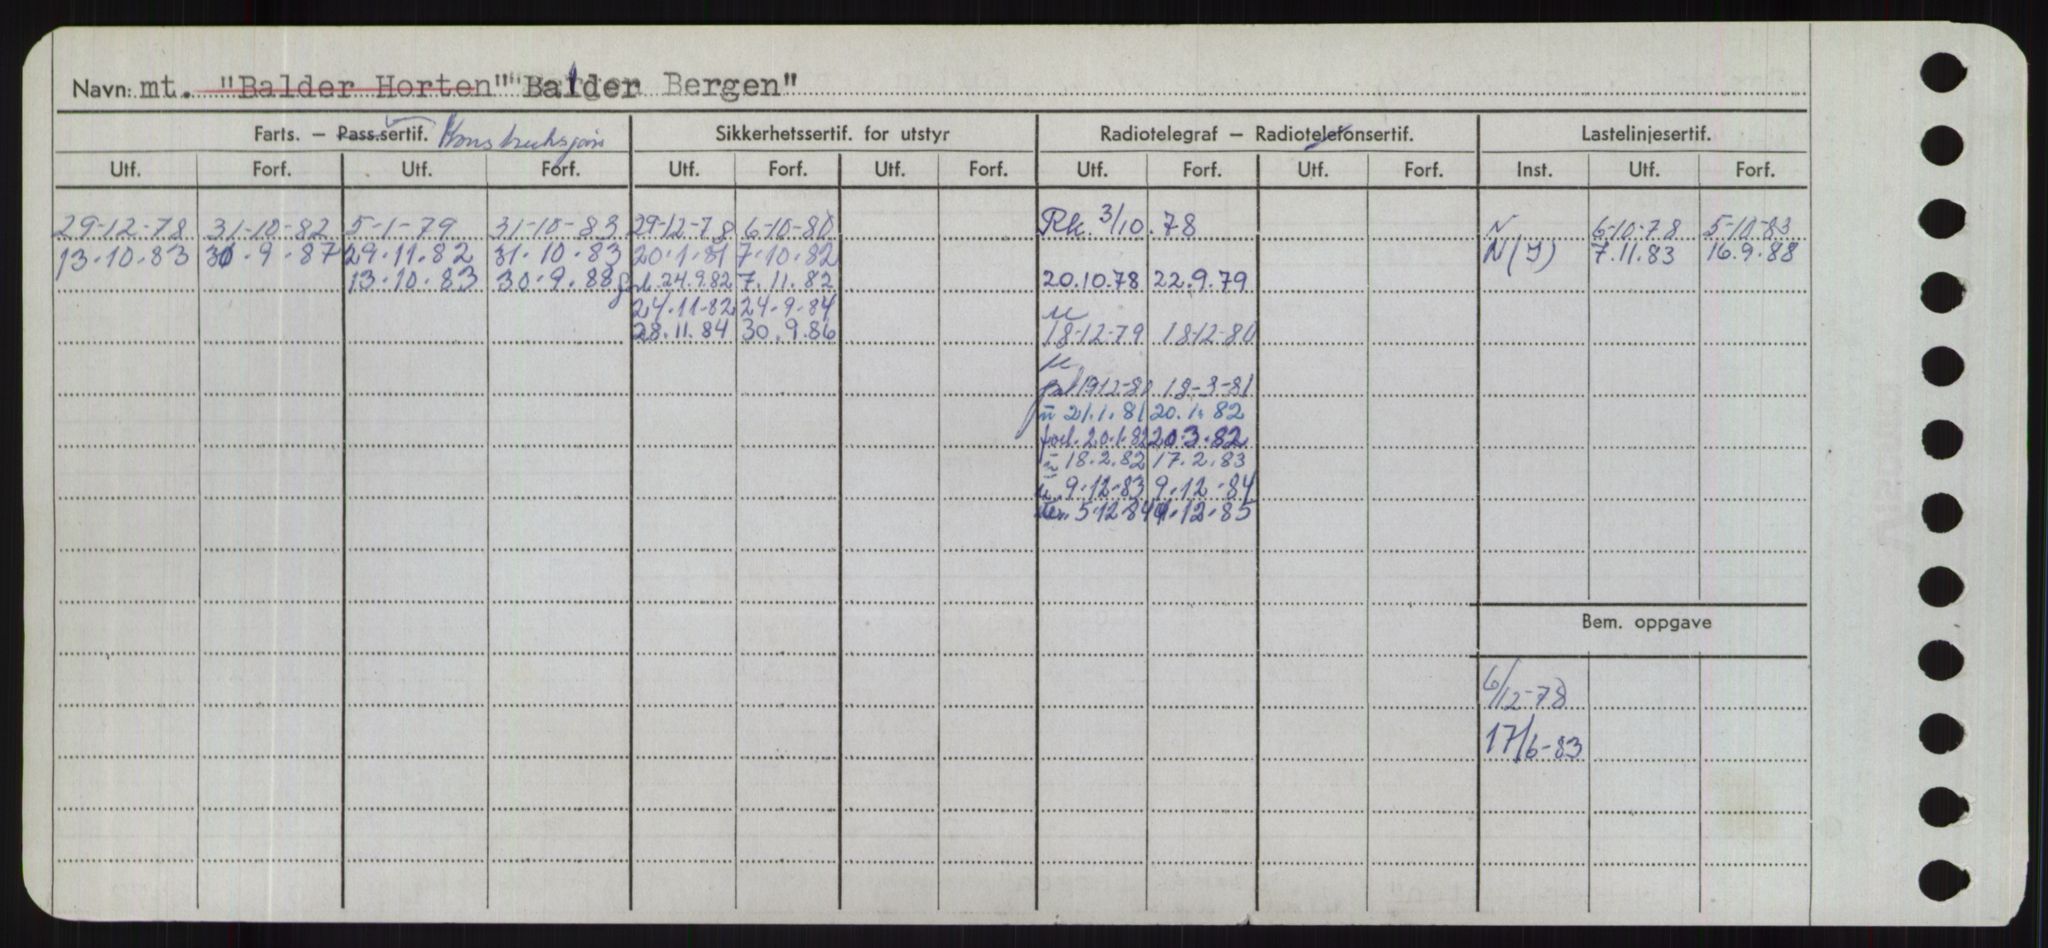 Navn: mt. "Balder Horten" "Balder Bergen"
Farts. – Pass.sertif. Konstruksjon Sikkerhetssertif. for utstyr Radiotelegraf – Radiotelefonsertif. Lastelinjesertif.
Utf. Forf. Utf. Forf. Utf. Forf. Utf. Forf. Utf. Forf. Utf. Forf. Inst. Utf. Forf.
29-12-78 31-10-82 5-1-79 31-10-83 29-12-78 6-10-80 Rk. 3/10.78 N 6-10-78 5-10-83
13.10.83 30.9.87 29.11.82 31.10.83 20.1.81 7.10.82 N(I) 7.11.83 16.9.88
13.10.83 30.9.88 24.9.82 7.11.82 20.10.78 22.9.79
24.11.82 24.9.84
28.11.84 30.9.86 18-12-79 18-12-80
19-12-80 18-3-81
21.1.81 20.1.82
forl. 20.1.82 20.3.82
18.2.82 17.2.83
9.12.83 9.12.84
5.12.84 4.12.85
Bem. oppgave
6/12-78
17/6-83